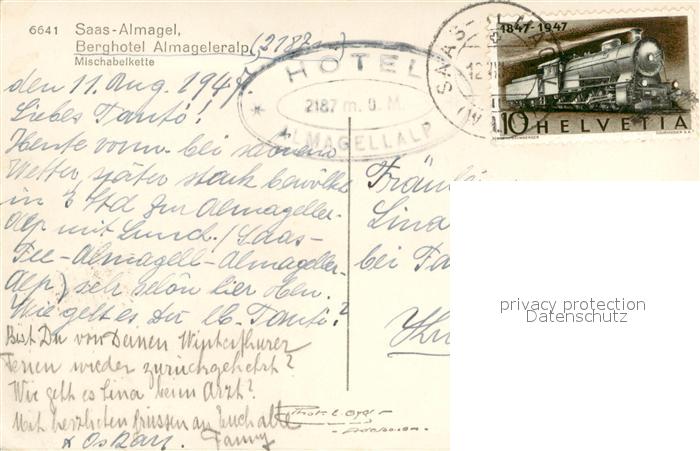 6641 Saas-Almagel,
Berghotel Almageleralp (2182 m)
Mischabelkette
HOTEL
2187 m. ü. M.
ALMAGELLALP
SAAS-
1847-1947
10 HELVETIA
den 11. Aug. 1947.
Liebes Tanti!
Heute vorm. bei schönem
Wetter, später stark bewölkt
in Std zur Almageller-
Alp mit Lunch. (Saas-
Fee-Almagell-Almageller-
Alp) sehr schön hier oben.
Wie geht es Dir lb. Tanti?
Bist Du von Deinen Winterthurer
Ferien wieder zurückgekehrt?
Wie geht es Lina beim Arzt?
Mit herzlichen Grüssen an Euch alle
Fanny
& Oskar.
Fräul
Lina
bei Fa
Phot.
privacy protection
Datenschutz